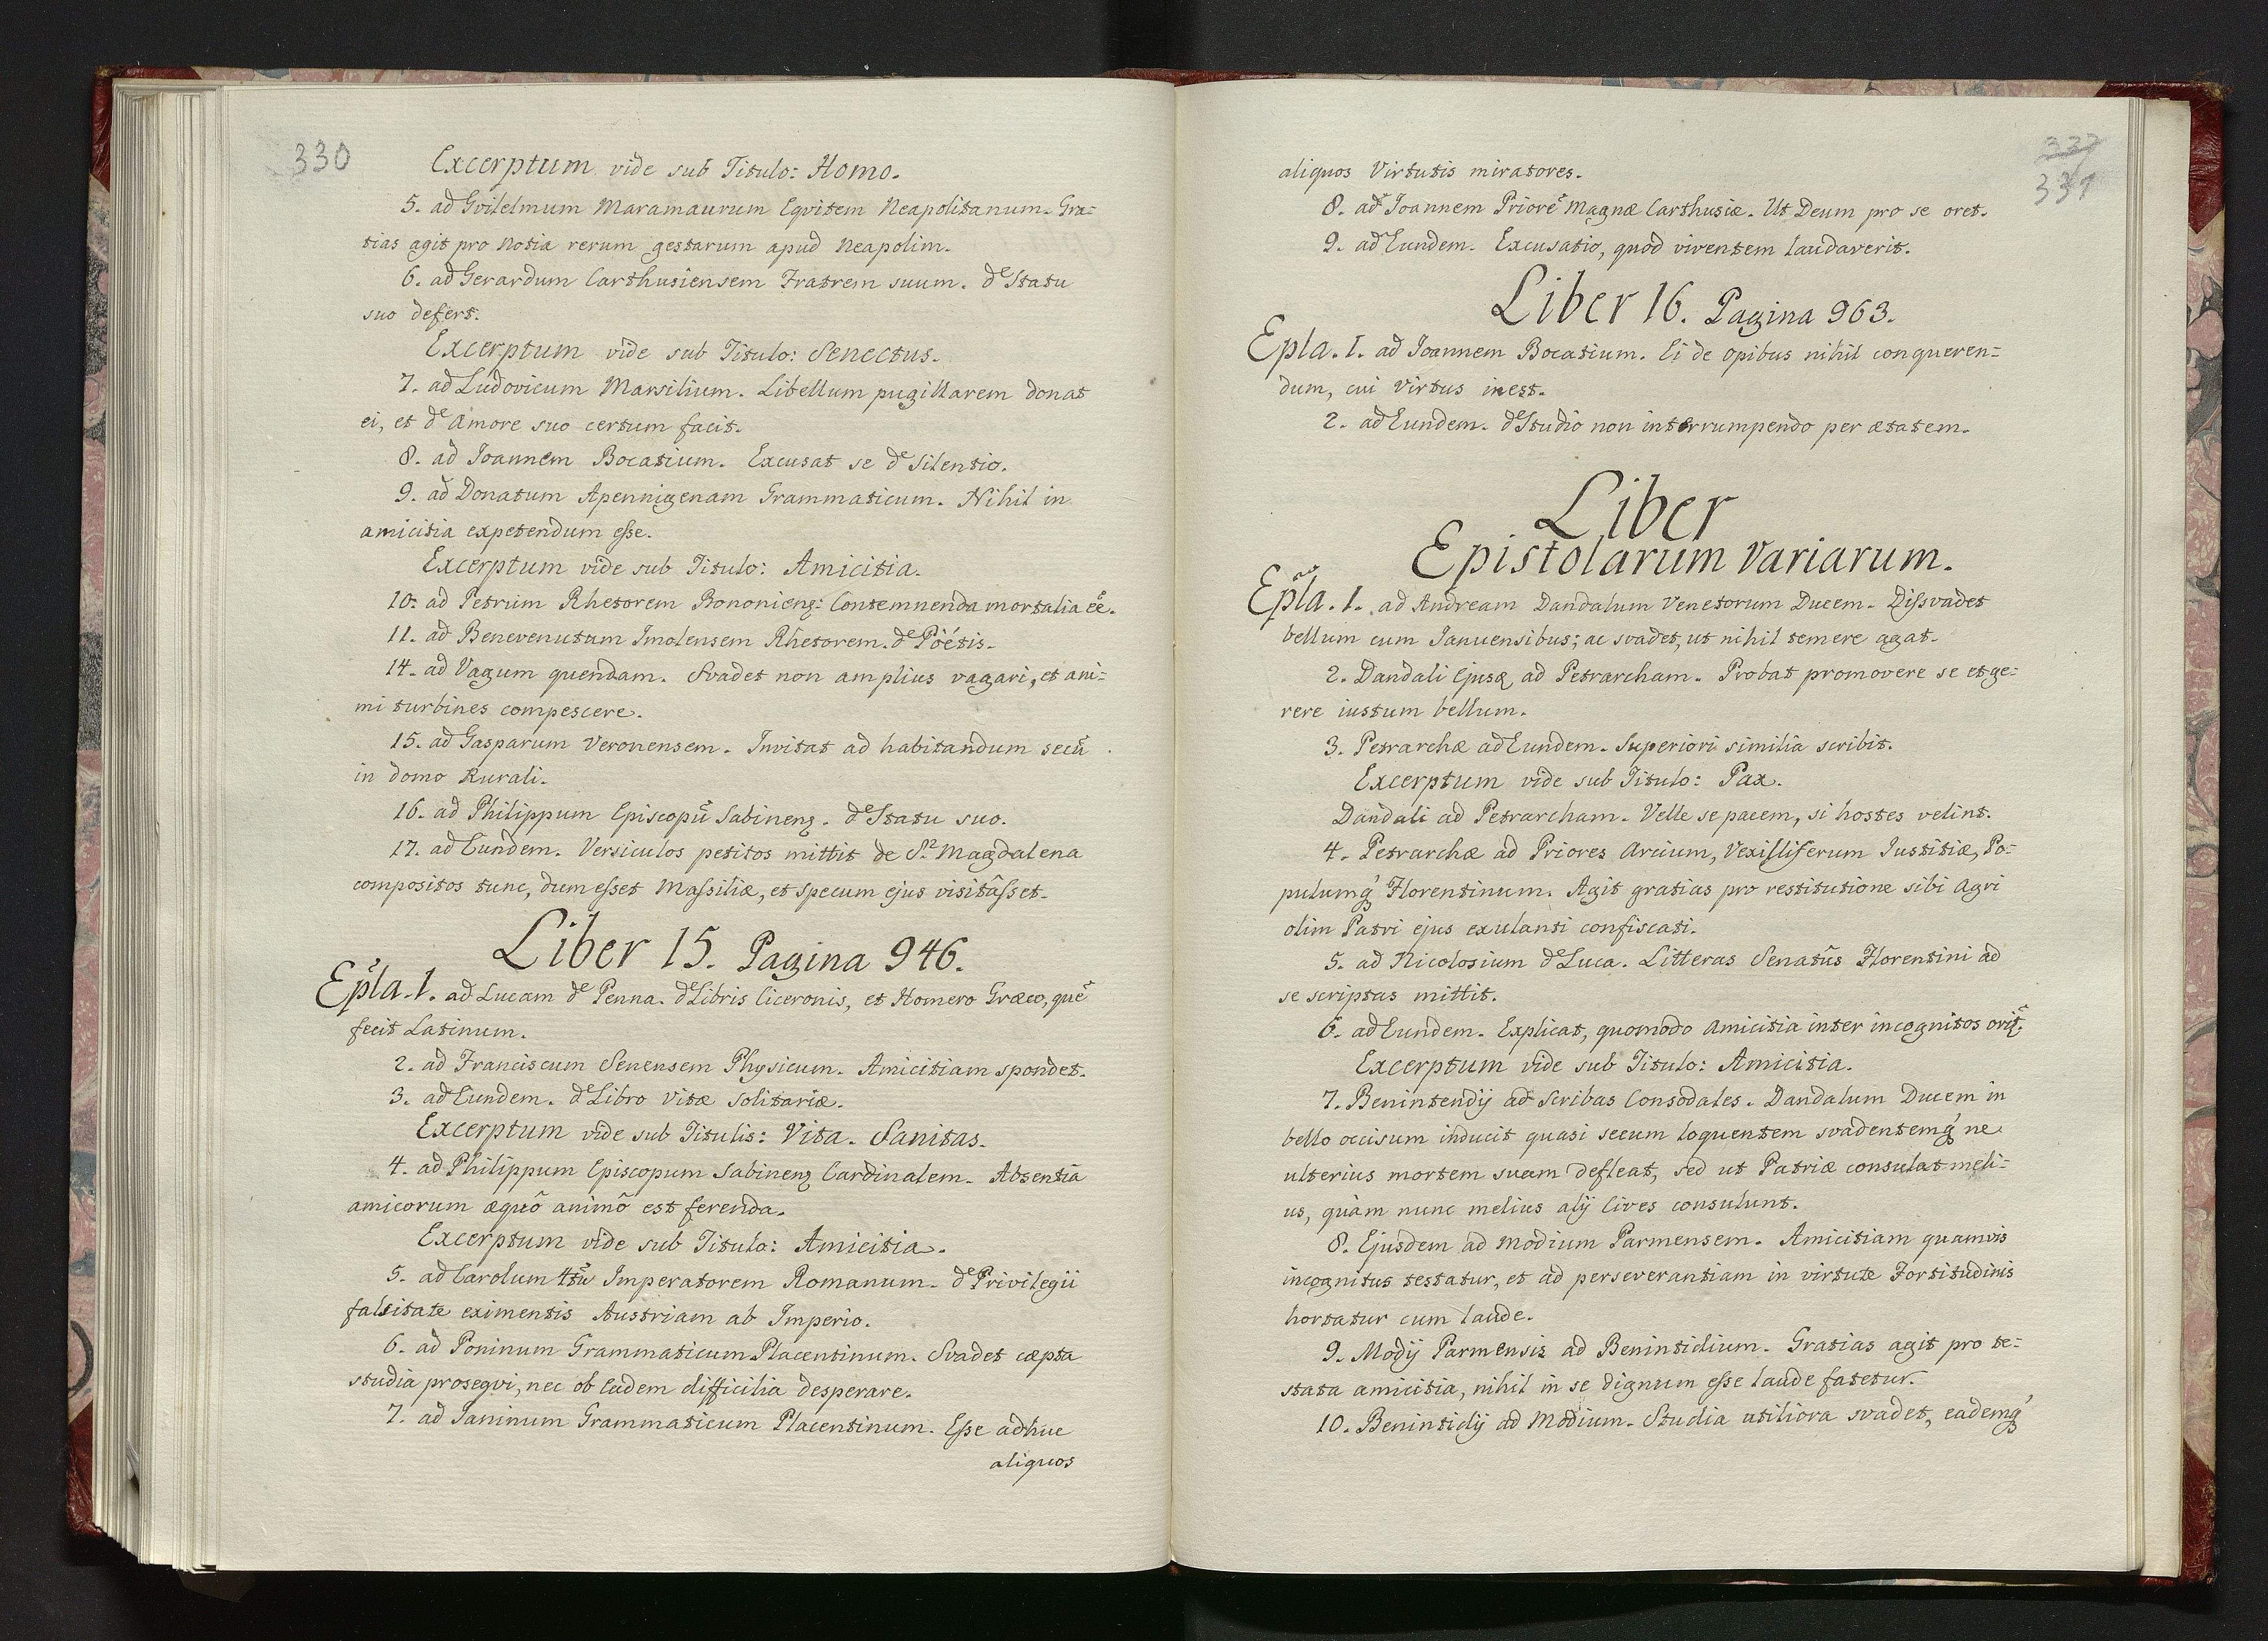 330
Excerptum vide sub Titulo: Homo.
5. ad Gvilelmum Maramaurum Eqvitem Neapolitanum. Gra=
tias agit pro Notia rerum gestarum apud Neapolim.
6. ad Gerardum Carthusiensem Fratrem suum. de Statu
suo defert.
Excerptum vide sub Titulo: Senectus.
7. ad Ludovicum Marsilium. Libellum pugillarem donat
ei, et de Amore suo certum facit.
8. ad Joannem Bocatium. Excusat se de Silentio.
9. ad Donatum Apennigenam Grammaticum. Nihil in
amicitia expetendum esse.
Excerptum vide sub Titulo: Amicitia.
10. ad Petrum Rhetorem Bononieng: Contemnenda mortalia eẽ.
11. ad Benevenutum Imolensem Rhetorem. de Poëtis.
14. ad Vagum quendam. Svadet non amplius vagari, et ani=
mi turbines compescere.
15. ad Gasparum Veronensem. Invitat ad habitandum secũ
in domo Rurali.
16. ad Philippum Episcopũ Sabineng. de Statu suo.
17. ad Eundem. Versiculos petitos mittit de S.ᵃ Magdalena
compositos tunc, dum esset Massiliæ, et Specum ejus visitâsset.
Liber 15. Pagina 946.
Ep̃la. 1. ad Lucam de Penna. de Libris Ciceronis, et Homero Græco, quẽ
fecit Latinum.
2. ad Franciscum Senensem Physicum. Amicitiam spondet.
3. ad Eundem. de Libro Vitæ Solitariæ.
Excerptum vide sub Titulis: Vita. Sanitas.
4. ad Philippum Episcopum Sabineng Cardinalem. Absentia
amicorum æquô animô est ferenda.
Excerptum vide sub Titulo: Amicitia.
5. ad Carolum 4tũ Imperatorem Romanum. de Privilegii
falsitate eximentis Austriam ab Imperio.
6. ad Poninum Grammaticum Placentinum. Svadet cæpta
studia proseqvi, nec ob Eadem difficilia desperare.
7. ad Janinum Grammaticum Placentinum. Esse adhuc
aliquos
337
331
aliquos Virtutis miratores.
8. ad Joannem Priorẽ Magnæ Carthusiæ. Ut Deum pro se oret.
9. ad Eundem. Excusatio, quod viventem laudaverit.
Liber 16. Pagina 963.
Epla. 1. ad Joannem Bocatium. Ei de opibus nihil conqueren=
dum, cui Virtus inest.
2. ad Eundem. de Studio non interrumpendo per ætatem.
Liber
Epistolarum Variarum.
Ep̃la. 1. ad Andream Dandalum Venetorum Ducem. Dissvadet
bellum cum Januensibus; ac svadet, ut nihil temere agat.
2. Dandali Ejusq ad Petrarcham. Probat promovere se et ge=
rere iustum bellum.
3. Petrarchæ ad Eundem. Superiori similia scribit.
Excerptum vide sub Titulo: Pax.
Dandali ad Petrarcham. Velle se pacem, si hostes velint.
4. Petrarchæ ad Priores Arcium, Vexilliferum Iustitiæ, Po=
pulumq́ Florentinum. Agit gratias pro restitutione sibi Agri
olim Patri ejus exulanti confiscati.
5. ad Nicolosium de Luca. Litteras Senatûs Florentini ad
se scriptas mittit.
6. ad Eundem. Explicat, quomodo Amicitia inter incognitos oriṯ.
Excerptum vide sub Titulo: Amicitia.
7. Benintendij ad Scribas Consodales. Dandalum Ducem in
bello occisum inducit quasi secum loquentem svadentemq́ ne
ulterius mortem suam defleat, sed ut Patriæ consulat meli=
us, quàm nunc melius alij Cives consulunt.
8. Ejusdem ad Modium Parmensem. Amicitiam quamvis
incognitus testatur, et ad perseverantiam in virtute Fortitudinis
hortatur cum laude.
9. Modij Parmensis ad Benintidium. Gratias agit pro te=
stata amicitia, nihil in se dignum esse laude fatetur.
10. Benintidij ad Modium. Studia utiliora svadet, eademq́